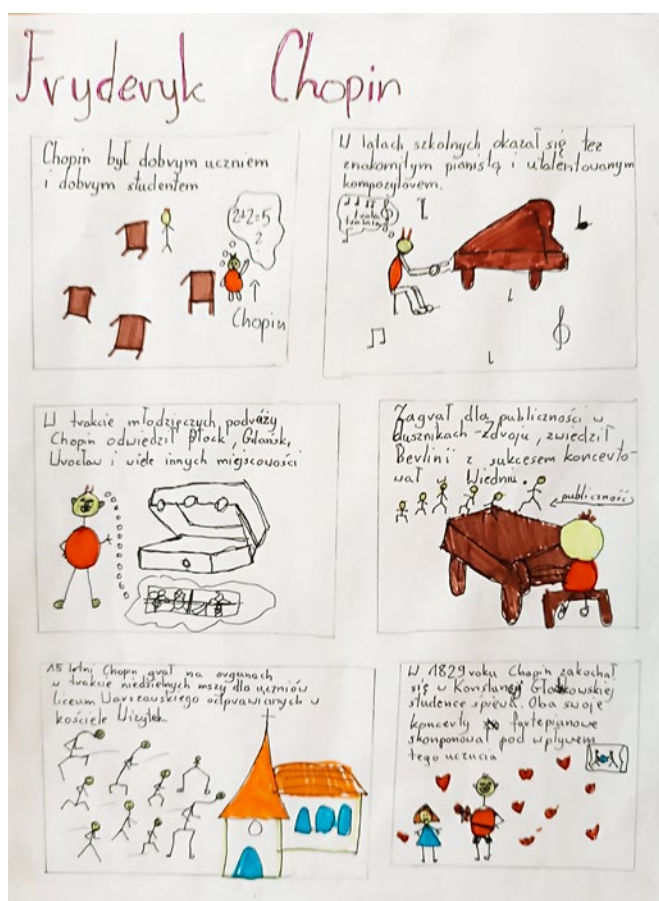 Fryderyk Chopin
Chopin był dobrym uczniem
i dobrym studentem
2+2=5
?
Chopin
W latach szkolnych okazał się też
znakomitym pianistą i utalentowanym
kompozytorem.
W trakcie młodzięczych podróży
Chopin odwiedził Płock, Gdańsk,
Wrocław i wiele innych miejscowości
Zagrał dla publiczności w
Dusznikach-Zdroju, zwiedził
Berlin i z sukcesem koncerto-
wał w Wiedniu.
publiczność
15 letni Chopin grał na organach
w trakcie niedzielnych mszy dla uczniów
Liceum Warszawskiego odprawianych w
kościele Wizytek
W 1829 roku Chopin zakochał
się w Konstancji Gładkowskiej
studence śpiewu. Oba swoje
koncerty fortepianowe
skomponował pod wpływem
tego uczucia